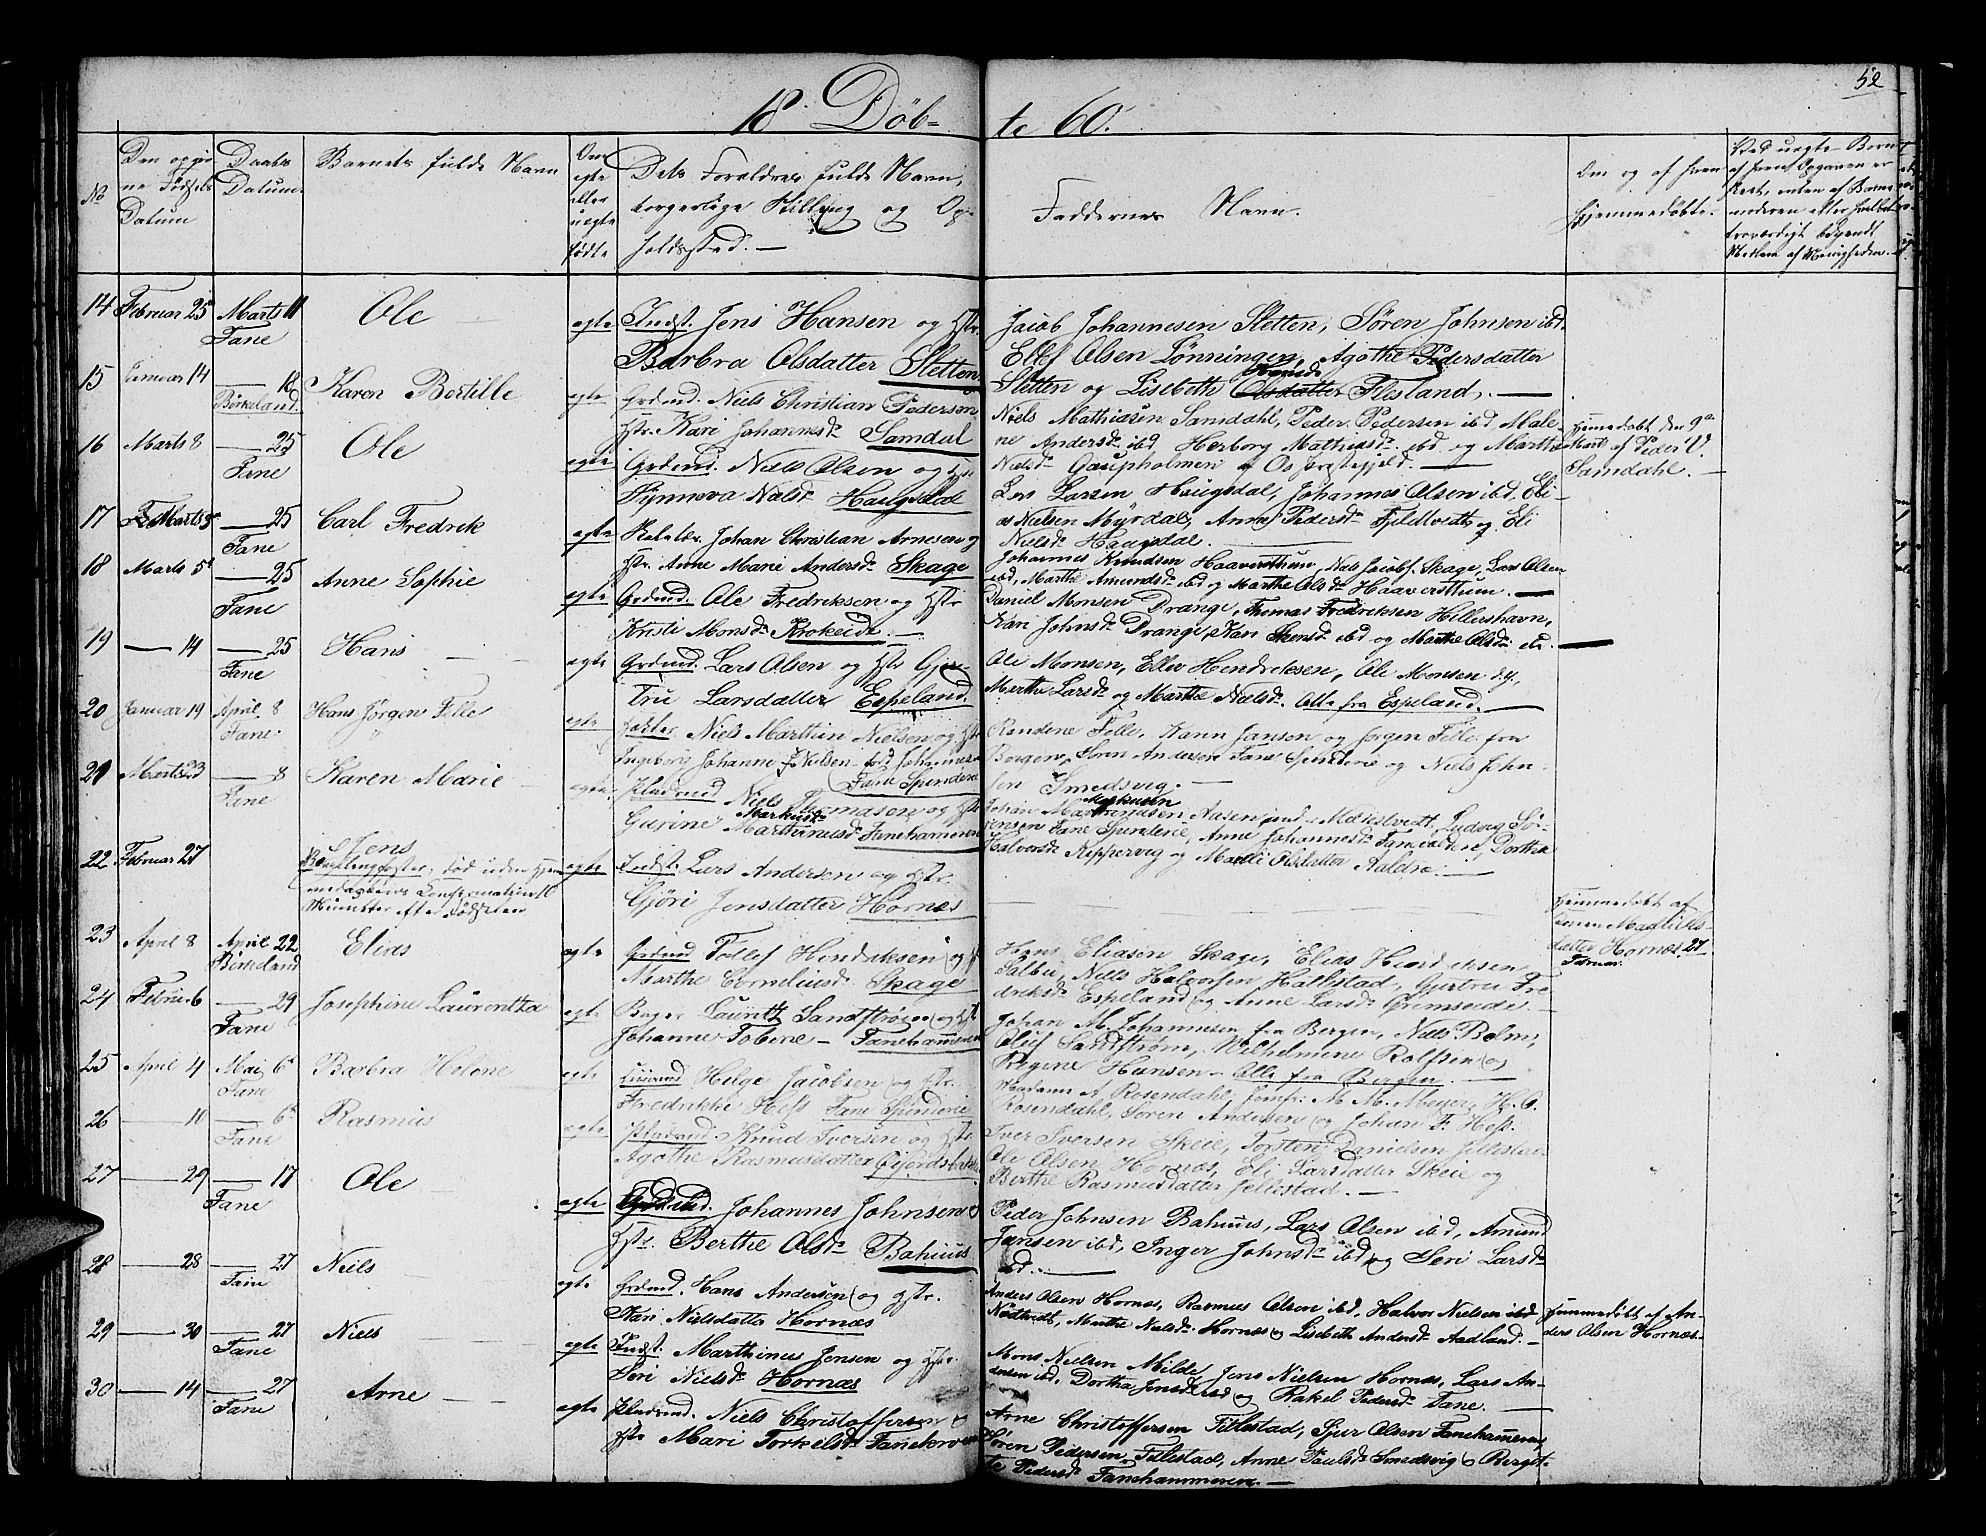 52
18 Döb-
te 60.
No
Den opgiv
ne Fødsels
Datum
Daabs
Datum
Barnets fulde Navn
Om
egte
eller
uegte
fødte
Dets Forældres fulde Navn,
borgerlige Stilling og Op-
holdssted. —
Faddernes Navn.
Om og af hvem
hjemmedøbte.
14 Februar 25 Marts 11 Ole egte Indst. Jens Hansen og Hstr.
Fane
Barbra Olsdatter Sletten
Jacob Johannesen Sletten, Søren Johnsen ibd.
Ellef Olsen Lønningen, Agathe Pedersdatter
Sletten og Lisbeth Olsdatter Flesland. —
15 Januar 14 — 18 Karen Bertille egte Grdmd. Niels Christian Pedersen
Birkeland.
Hstr. Kari Johannesd. Samdal
Niels Mathiasen Samdahl, Peder Pedersen ibd Male-
ne Andersd. ibd Herborg Mathiasd. ibd og Marthe
Nielsd. Gaupholmen af Os Præstegjeld. —
Hjemmedøbt den 9de
Marts af Peder N.
Samdahl. —
16 Marts 8 — 25 Ole egte Grdmd. Niels Olsen og Hstr
Fane
Synneva Nielsd. Haugsdal
Lars Larsen Haugsdal, Johannes Olsen ibd, Eli-
as Nielsen Myrdal, Anna Pedersd. Fjeldtvedt og Eli
Nielsd. Haugsdal. —
17 Marts 3 — 25 Carl Fredrik egte Johan Christian Arnesen og
Fane
Hstr. Anne Marie Andersd. Skage
Johannes Knudsen Haaversthum, Niels Jacobs. Skage, Lars Olsen
ibd, Marthe Amundsd. ibd og Marthe Olsd. Haaversthum. —
18 Marts 5 — 25 Anne Sophie egte Grdmd. Ole Fredriksen og Hstr
Fane
Kristi Monsd. Krokeide. —
Daniel Monsen Drange, Thomas Fredriksen Hillershavn,
Kari Johnsd. Drange, Kari ibd og Marthe Olsd. ibd. —
19 — 14 — 25 Hans — egte Grdmd. Lars Olsen og Hstr Gjer-
Fane
tru Larsdatter Espeland.
Ole Monsen, Ellev Hendriksen, Ole Monsen d.y,
Marthe Larsd. og Marthe Nielsd. Alle fra Espeland. —
20 Januar 19 April 8 Hans Jørgen Felle egte Niels Marthin Nielsen og Hstr
Fane
Ingeborg Johanne Nielsen
Fane Spinderie
Randine Felle, Jansen og Jørgen Felle fra
Bergen, Søren Andersen Fane Spinderie og Niels John-
sen Smedsvig. —
21 Marts 23 — 8 Karen Marie — egte Pladsmd Niels Thomasen og Hstr
Fane
Gurine Martinusd. Fanehammeren
Johan Martinusen Aasen, Ludvig Sø-
rensen Fane Spinderie, Anne Johannesd. Dorthea
Halvorsd. Kippervig og Olsdatter Aaldre. —
22 Februar 27 Jens egte Indst. Lars Andersen og Hstr.
Gjøri Jensdatter Hornæs
død uden Hjem-
medaabens Confirmation 10
Minutter efter Fødselen
Hjemmedøbt af
Konen
datter Hornæs 27
Februar.
23 April 8 April 22 Elias egte Grdmd Tollef Hendriksen og H
Birkeland
Marthe Corneliusd. Skage
Hans Eliasen Skage, Elias Hendriksen
Salbu, Niels Halvorsen Hatlestad, Gjertru Fre
driksd. Espeland og Anne Larsd. Grimseide. —
24 Febru. 6 — 29 Josephine Laurentza egte Bager Lauritz Sandstrøm og Hstr
Fane
Johanne Tobine — Fanehammeren
Johan M. Johannesen fra Bergen, Niels Bolm,
Oluf Sandstrøm, Wilhelmine Rolfsen og
Regine Hansen — Alle fra Bergen. —
25 April 4 Mai 6 Barbra Helene egte Helge Jacobsen og Hstr.
Fane
Fredrikke Hess Fane Spinderie
Madam A. Rosendahl, Jomfr: M. M. Meyer, H. O.
Rosendahl, Søren Andersen og Johan F. Hess.
26 — 10 — 6 Rasmus egte Pladsmd. Knud Iversen og Hstr
Fane
Agathe Rasmusdatter
Iver Iversen Skeie, Torsten Danielsen Fillestad
Ole Olsen Hornæs, Eli Larsdatter Skeie og
Berthe Rasmusdatter Fillestad. —
27 — 29 — 17 Ole — egte Grdmd. Johannes Johnsen &
Fane
Hstr. Berthe Olsd. Bahuus
Peder Johnsen Bahuus, Lars Olsen ibd, Amund
Jansen ibd, Inger Johnsd. ibd og Seri Larsd.
ibd. —
28 — 28 — 27 Niels — egte Grdmd. Hans Andersen og Hstr.
Fane
Kari Nielsdatter Hornæs
Anders Olsen Hornæs, Rasmus Olsen ibd, Halvor Nielsen ibd
Nøttvedt, Marthe Nielsd. Hornæs og Lisbeth Andersd. Aadland. —
Hjemmedøbt af An-
ders Olsen Hornæs.
29 — 30 — 27 Niels — egte Indst. Marthinus Jensen og Hstr.
Fane
Siri Nielsd. Hornæs
Mons Nielsen Milde, Jens Nielsen Hornæs, Lars An-
dersen ibd, Dorthea Jensd. ibd og Rakel Pedersd. Fane. —
30 — 14 — 27 Arne — egte Pladsmd. Niels Christoffersen og
Fane
Hstr Mari Torkelsd. Fanekroen
Arne Christoffersen Titlestad, Sjur Olsen Fanehammeren,
Søren Pedersen Titlestad, Anne Paulsd. Smedsvig & Bergit-
te Pedersd. Fanehammeren. —